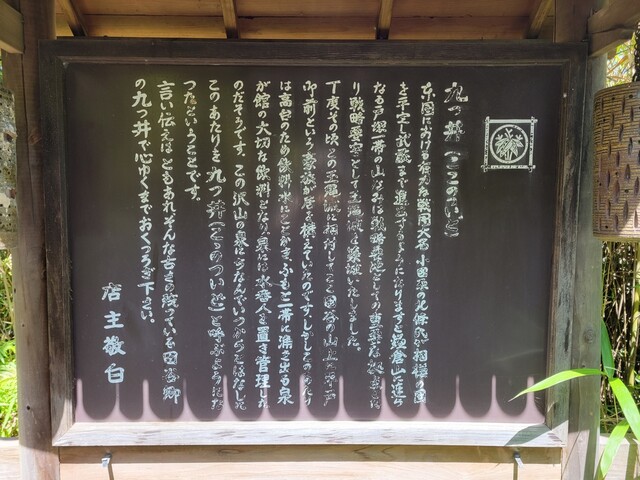 九つ井(ここのいど)
東国における有力な戦国大名 小田原の北條氏が相模の国
を平定し武蔵まで進出するようになりますと鎌倉山に連
なる戸塚一帯の山なみは戦略基地として重要な拠点とな
り戦略要害として玉縄城を築城いたしました。
丁度その頃 この玉縄城に相対してここ田谷の山上に
御前という豪族が館を構えていたのです。しかしこのあたり
は高台のため飲料水にことかき、ふもと一帯に湧き出る泉
が館の大切な飲料となり泉には水番人を置き管理した
のだそうです。この沢山の泉にちなんでいつからとはなした
このあたりを九つ井(ここのついど)と呼ぶようにな
つたということです。
言い伝えはともあれそんな古さの残っている田谷郷
の九つ井で心ゆくまでおくつろぎ下さい。
店主敬白